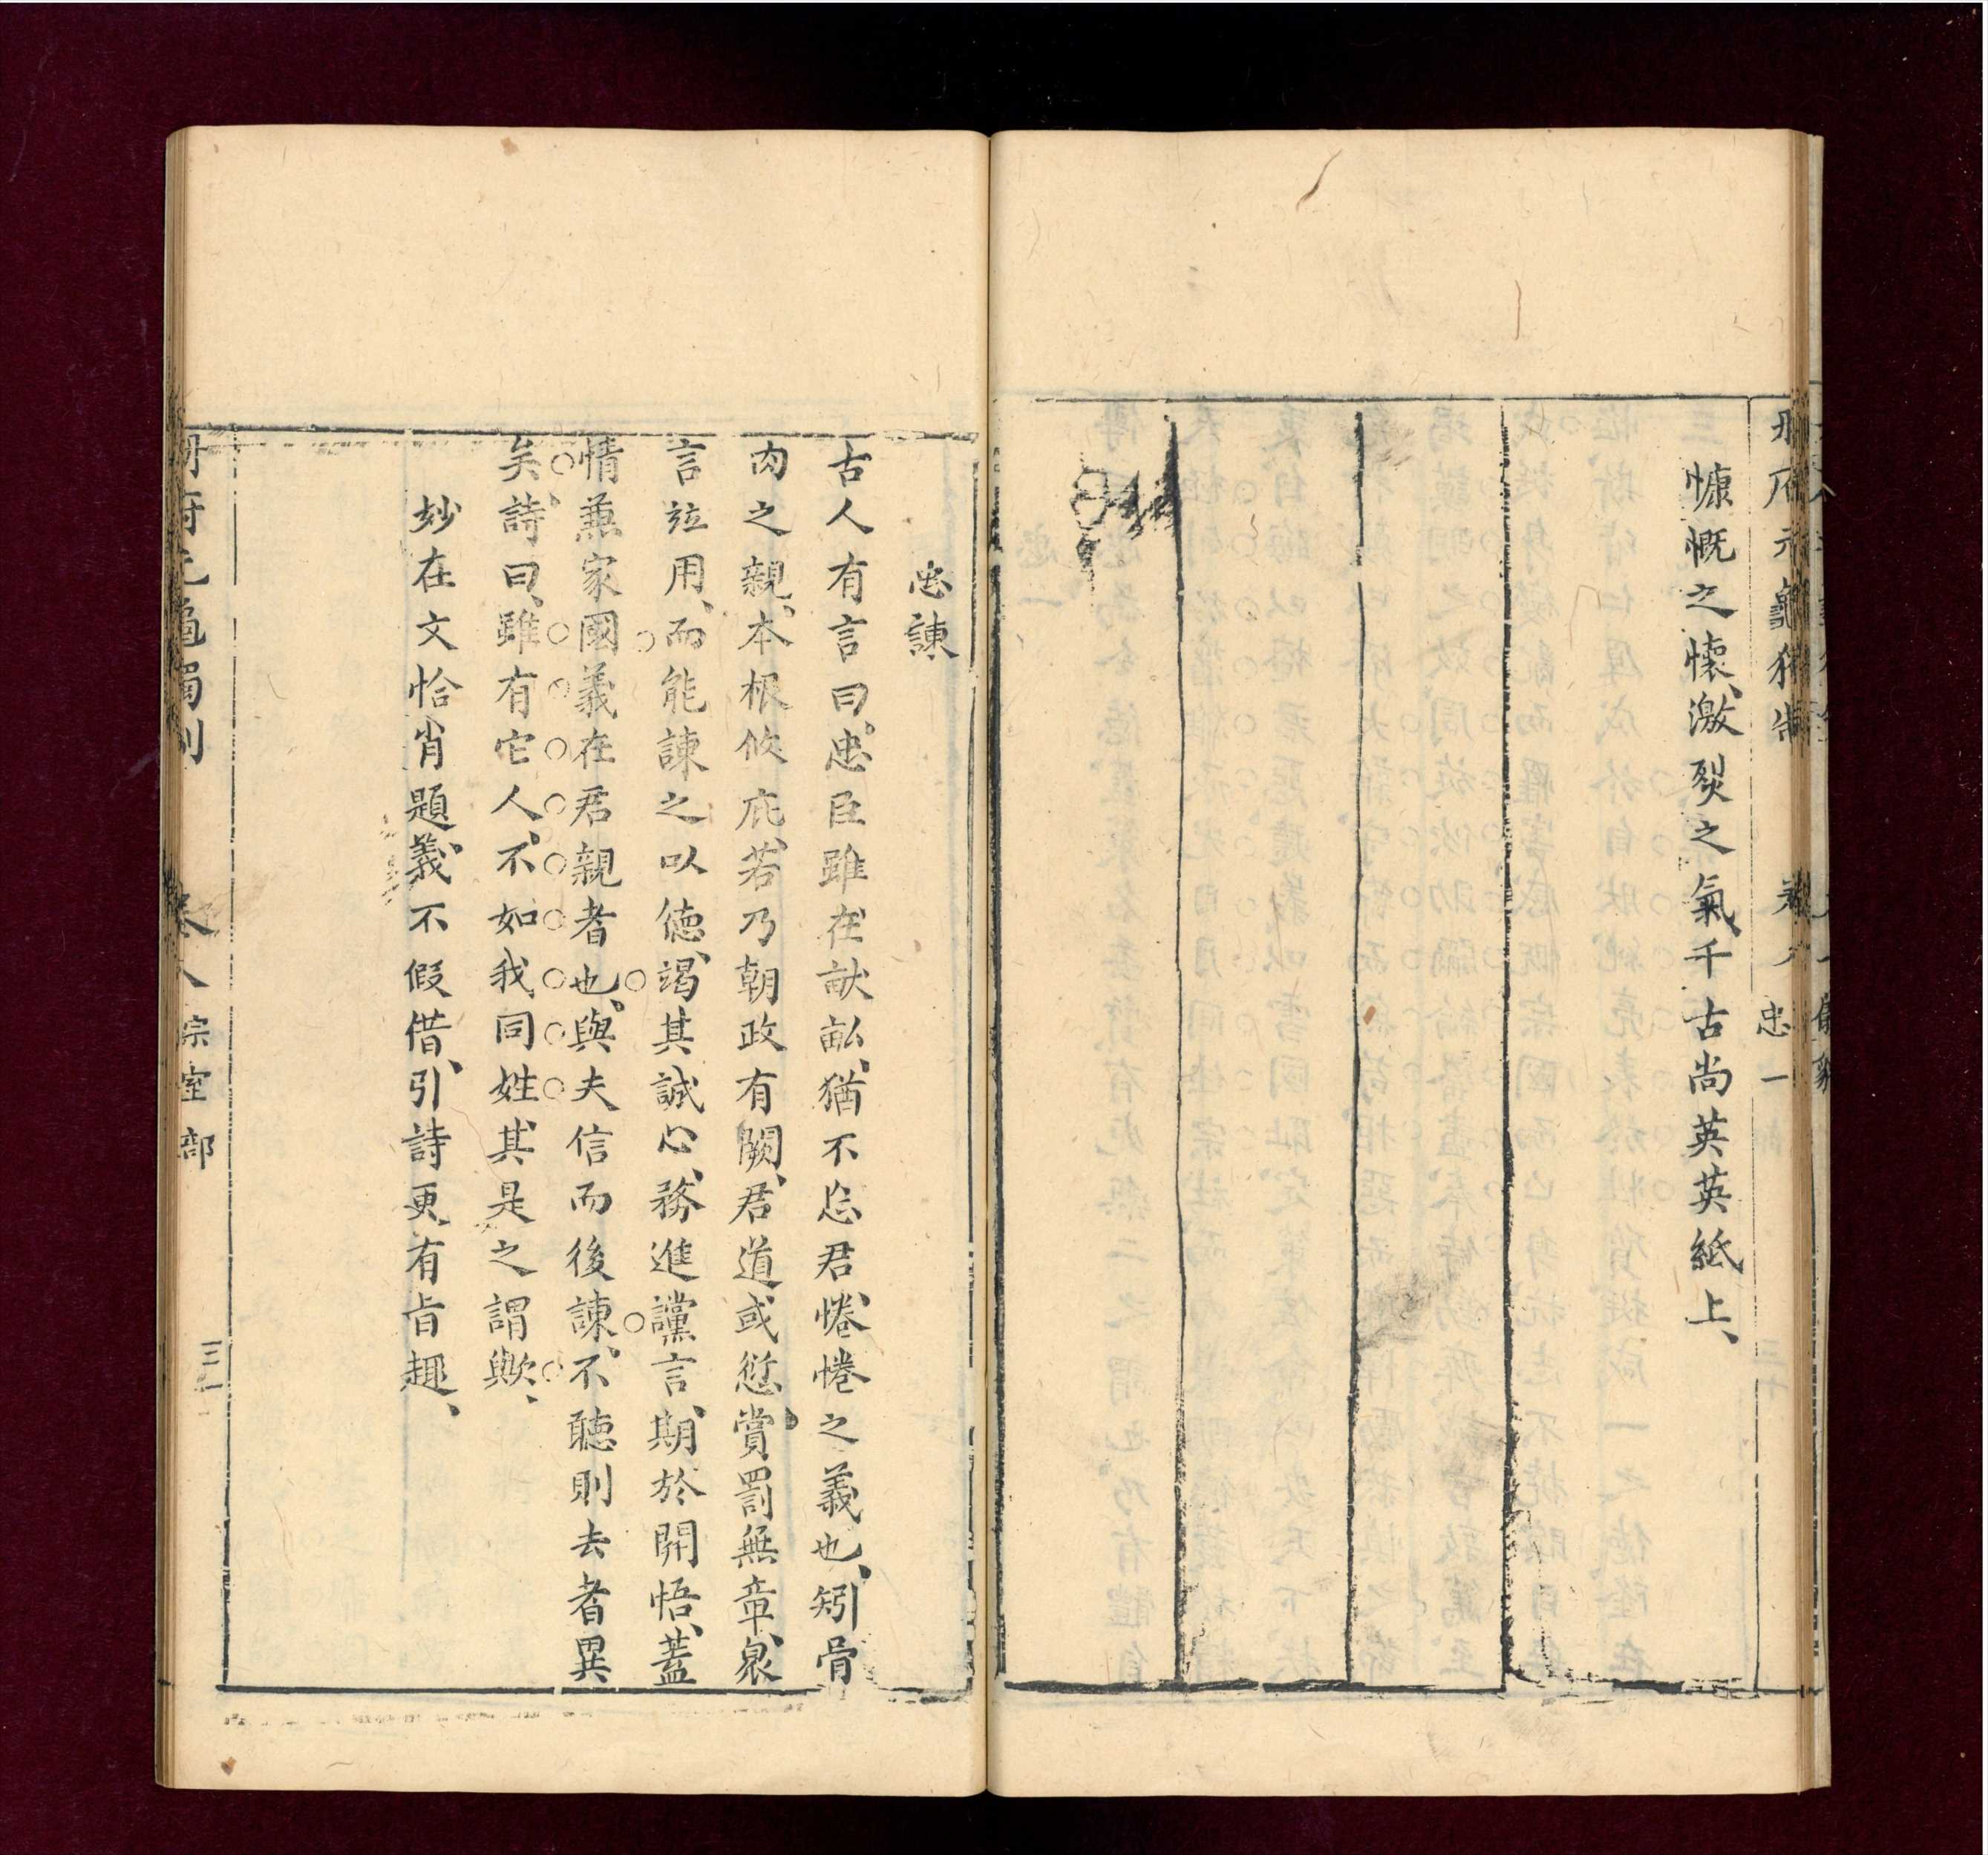 冊府元龜獨制 卷八 忠一
慷慨之懷、激烈之氣、千古尚英英紙上、
忠諫
古人有言曰。忠臣雖在畎畝、猶不忘君、惓惓之義也、矧骨
肉之親、本根攸庇、若乃朝政有闕、君道或愆、賞罰無章、泉
言竝用、而能諫之以德、竭其誠心、務進讜言、期於開悟、蓋
情兼家國義在君親者也。與夫信而後諫、不聽則去者異
矣、詩曰、雖有它人、不如我同姓其是之謂歟、
妙在文恰肖題義、不假借、引詩更有旨趣、
冊府元龜獨制 卷八 宗室部 三一